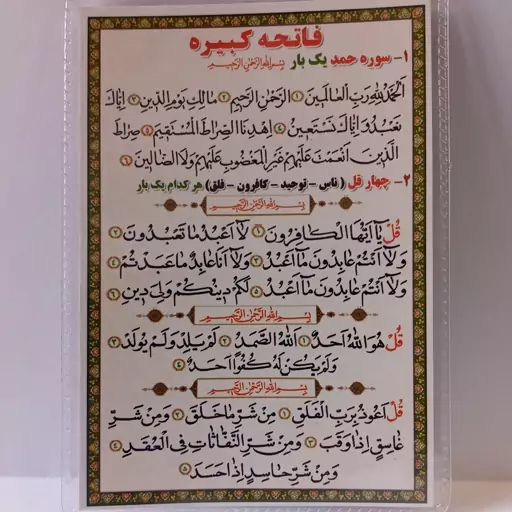 فاتحه کبیره
۱- سوره حمد یک بار بِسْمِ اللهِ الرَّحْمٰنِ الرَّحِیمِ
اَلْحَمْدُ لِلّٰهِ رَبِّ الْعَالَمِینَ ۱ اَلرَّحْمٰنِ الرَّحِیمِ ۲ مَالِكِ یَوْمِ الدِّینِ ۳ اِیَّاكَ
نَعْبُدُ وَ اِیَّاكَ نَسْتَعِینُ ۴ اِهْدِنَا الصِّرَاطَ الْمُسْتَقِیمَ ۵ صِرَاطَ
الَّذِینَ اَنْعَمْتَ عَلَیْهِمْ غَیْرِ الْمَغْضُوبِ عَلَیْهِمْ وَلَا الضَّالِّینَ ۶
۲- چهار قل (ناس - توحید - کافرون - فلق) هر کدام یک بار
بِسْمِ اللهِ الرَّحْمٰنِ الرَّحِیمِ
قُلْ یَا اَیُّهَا الْكَافِرُونَ ۱ لَا اَعْبُدُ مَا تَعْبُدُونَ ۲
وَلَا اَنْتُمْ عَابِدُونَ مَا اَعْبُدُ ۳ وَلَا اَنَا عَابِدٌ مَا عَبَدْتُمْ ۴
وَلَا اَنْتُمْ عَابِدُونَ مَا اَعْبُدُ ۵ لَكُمْ دِینُكُمْ وَلِیَ دِینِ ۶
بِسْمِ اللهِ الرَّحْمٰنِ الرَّحِیمِ
قُلْ هُوَ اللهُ اَحَدٌ ۱ اَللهُ الصَّمَدُ ۲ لَمْ یَلِدْ وَلَمْ یُولَدْ ۳
وَلَمْ یَكُنْ لَهُ كُفُوًا اَحَدٌ ۴
بِسْمِ اللهِ الرَّحْمٰنِ الرَّحِیمِ
قُلْ اَعُوذُ بِرَبِّ الْفَلَقِ ۱ مِنْ شَرِّ مَا خَلَقَ ۲ وَمِنْ شَرِّ
غَاسِقٍ اِذَا وَقَبَ ۳ وَمِنْ شَرِّ النَّفَّاثَاتِ فِی الْعُقَدِ ۴
وَمِنْ شَرِّ حَاسِدٍ اِذَا حَسَدَ ۵